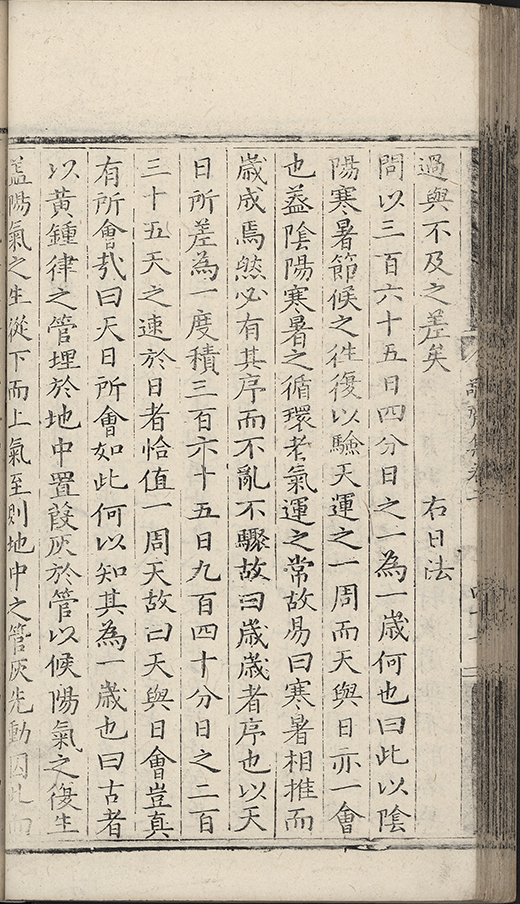 過與不及之差矣　右日法
問以三百六十五日四分日之一為一歲何也曰此以陰
陽寒暑節候之徃復以驗天運之一周而天與日亦一會
也葢陰陽寒暑之循環者氣運之常故易曰寒暑相推而
歲成焉然必有其序而不亂不驟故曰歲歲者序也以天
日所差為一度積三百六十五日九百四十分日之二百
三十五天之速於日者恰值一周天故曰天與日會豈真
有所會㢤曰天日所會如此何以知其為一歲也曰古者
以黃鍾律之管埋於地中置葭灰於管以候陽氣之復生
葢陽氣之生從下而上氣至則地中之管灰先動因此而